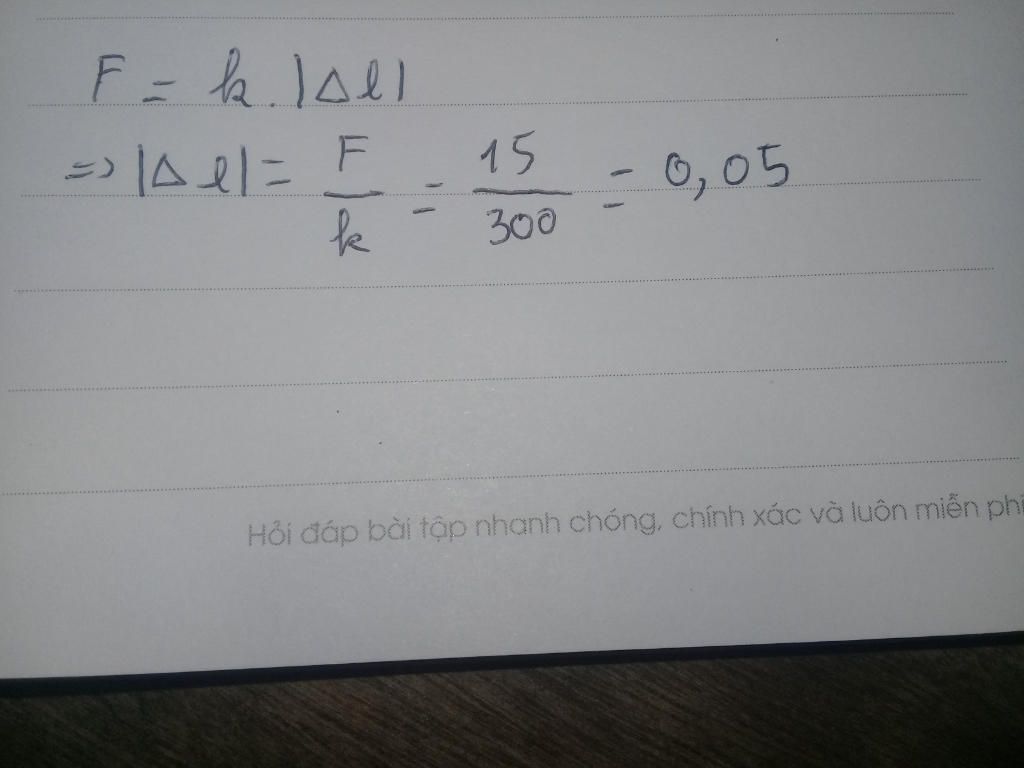 F = k . |Δl|
=> |Δl| = F/k = 15/300 = 0,05
Hỏi đáp bài tập nhanh chóng, chính xác và luôn miễn phí